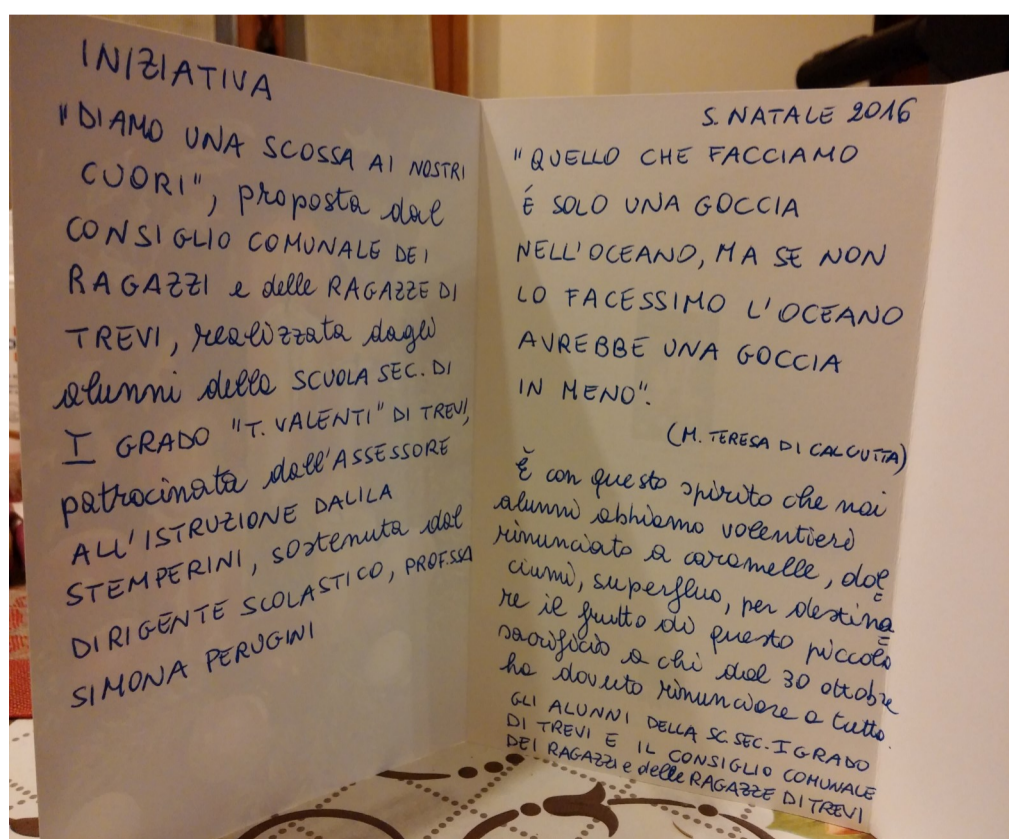 INIZIATIVA
"DIAMO UNA SCOSSA AI NOSTRI
CUORI", proposta dal
CONSIGLIO COMUNALE DEI
RAGAZZI e delle RAGAZZE DI
TREVI, realizzata dagli
alunni della SCUOLA SEC. DI
I GRADO "T. VALENTI" DI TREVI,
patrocinata dall'ASSESSORE
ALL'ISTRUZIONE DALILA
STEMPERINI, sostenuta dal
DIRIGENTE SCOLASTICO, PROF.SSA
SIMONA PERUGINI
S. NATALE 2016
"QUELLO CHE FACCIAMO
É SOLO UNA GOCCIA
NELL'OCEANO, MA SE NON
LO FACESSIMO L'OCEANO
AVREBBE UNA GOCCIA
IN MENO".
(M. TERESA DI CALCUTTA)
È con questo spirito che noi
alunni abbiamo volentieri
rinunciato a caramelle, dol=
ciumi, superfluo, per destina=
re il frutto di questo piccolo
sacrificio a chi dal 30 ottobre
ha dovuto rinunciare a tutto.
GLI ALUNNI DELLA SC. SEC. I GRADO
DI TREVI E IL CONSIGLIO COMUNALE
DEI RAGAZZI e delle RAGAZZE DI TREVI